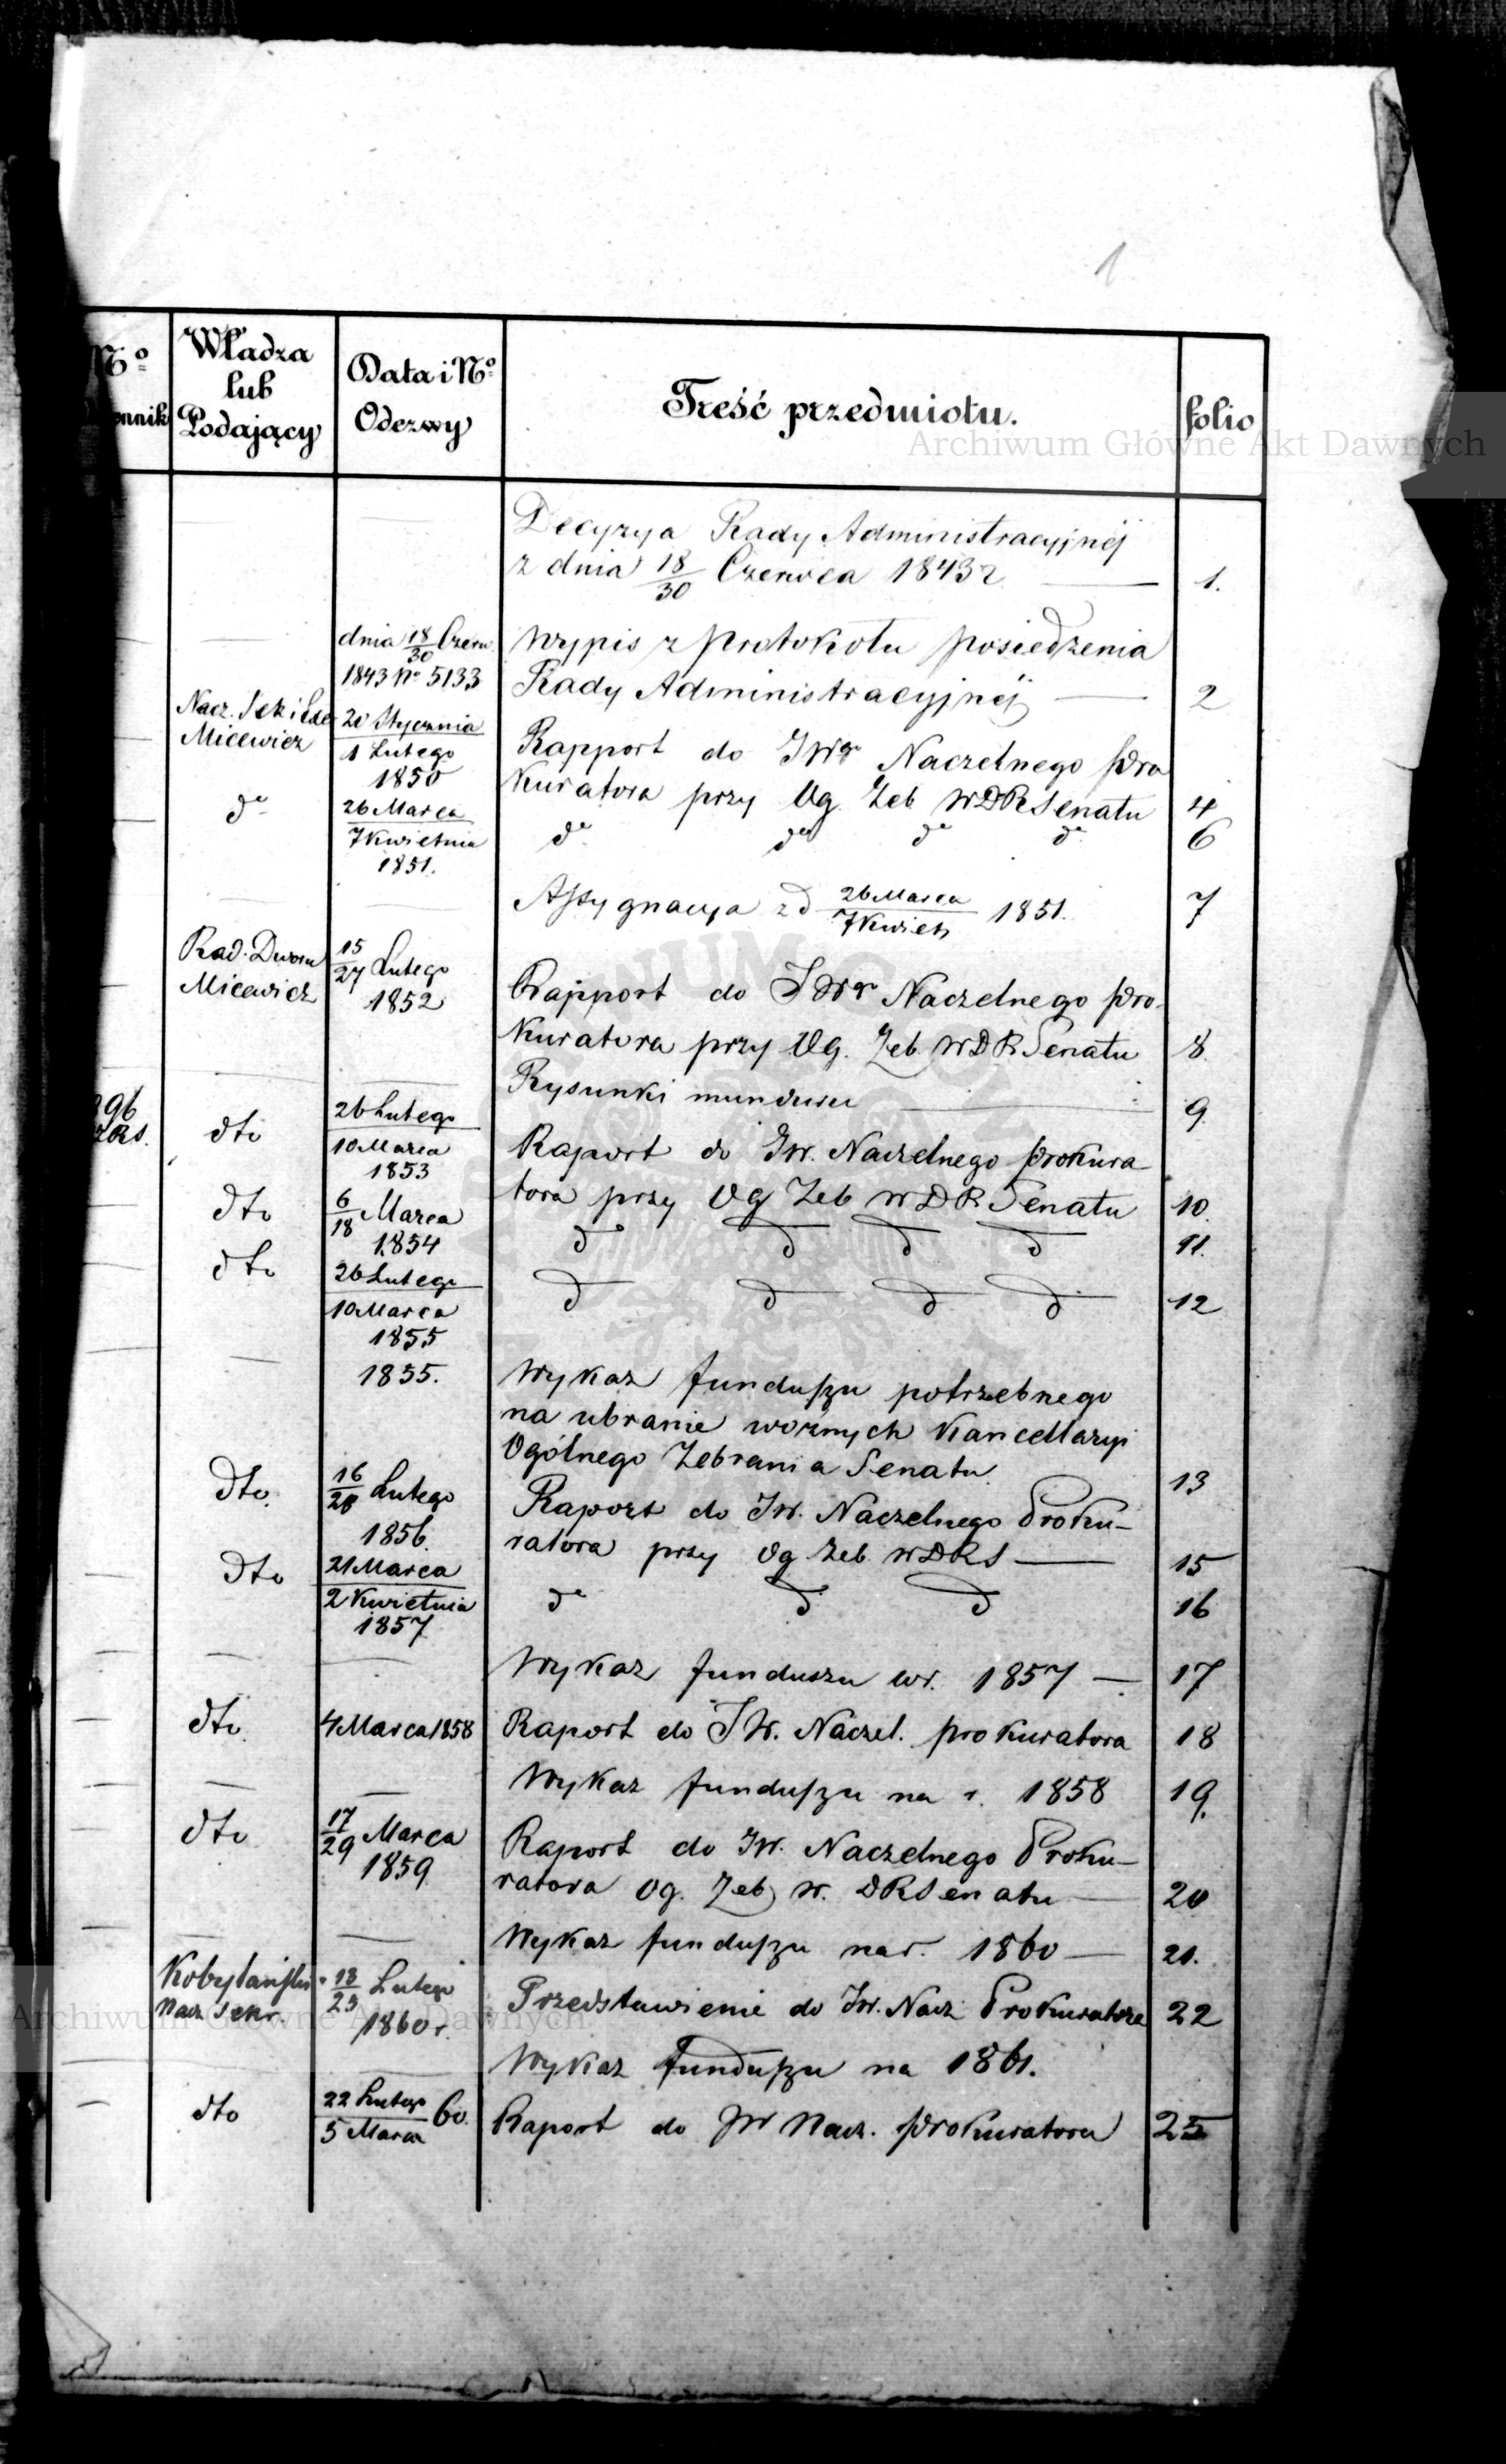 1
Nº
onnik
Władza
lub
Podający
Data i Nº
Odezwy
Treść przedmiotu.
folio
Decyzya Rady Administracyjnéj
z dnia 18/30 Czerwca 1843 r 1.
dnia 18/30 Czerw.
1843 Nº 5133
Wypis z protokołu posiedzenia
Rady Administracyjnéj 2
Nacz. Sek i
Micewicz
20 Stycznia
1 Lutego
1850
Rapport do JWgo Naczelnego Pro
kuratora przy Og. Zeb WDRSenatu 4
do
26 Marca
7 Kwietnia
1851.
do do do do 6
Assygnacya z d 26 Marca / 7 Kwiet 1851. 7
Rad. Dworu
Micewicz
15/27 Lutego
1852
Rapport do JWgo Naczelnego Pro-
kuratora przy Og. Zeb. WDRSenatu 8.
Rysunki munduru 9.
96
dto
26 Lutego
10 Marca
1853
Raport do JW. Naczelnego Prokura-
tora przy Og Zeb WDRSenatu 10.
dto
6/18 Marca
1854
do d d d 11.
dto
26 Lutego
10 Marca
1855
d d d d 12
1855.
Wykaz funduszu potrzebnego
na ubranie woźnych Kancellaryi
Ogólnego Zebrania Senatu 13
Dto.
16/28 Lutego
1856.
Raport do JW. Naczelnego Proku-
ratora przy Og Zeb WDRS 15
Dto
21 Marca
2 Kwietnia
1857
do d d 16
Wykaz funduszu wr. 1857 17
dto.
4 Marca 1858
Raport do JW. Naczel. prokuratora 18
Wykaz funduszu na r. 1858 19.
dto
17/29 Marca
1859
Raport do JW. Naczelnego Proku-
ratora Og. Zeb. W. DRSenatu 20
Wykaz funduszu na r. 1860 21.
Kobylański
Nacz Sekr.
13/25 Lutego
1860 r.
Przedstawienie do JW. Nacz Prokuratora 22
Wykaz funduszu na 1861.
dto
22 Lutego
5 Marca 60.
Raport do JW Nacz. Prokuratora 25
Archiwum Główne Akt Dawnych
Archiwum Główne Akt Dawnych